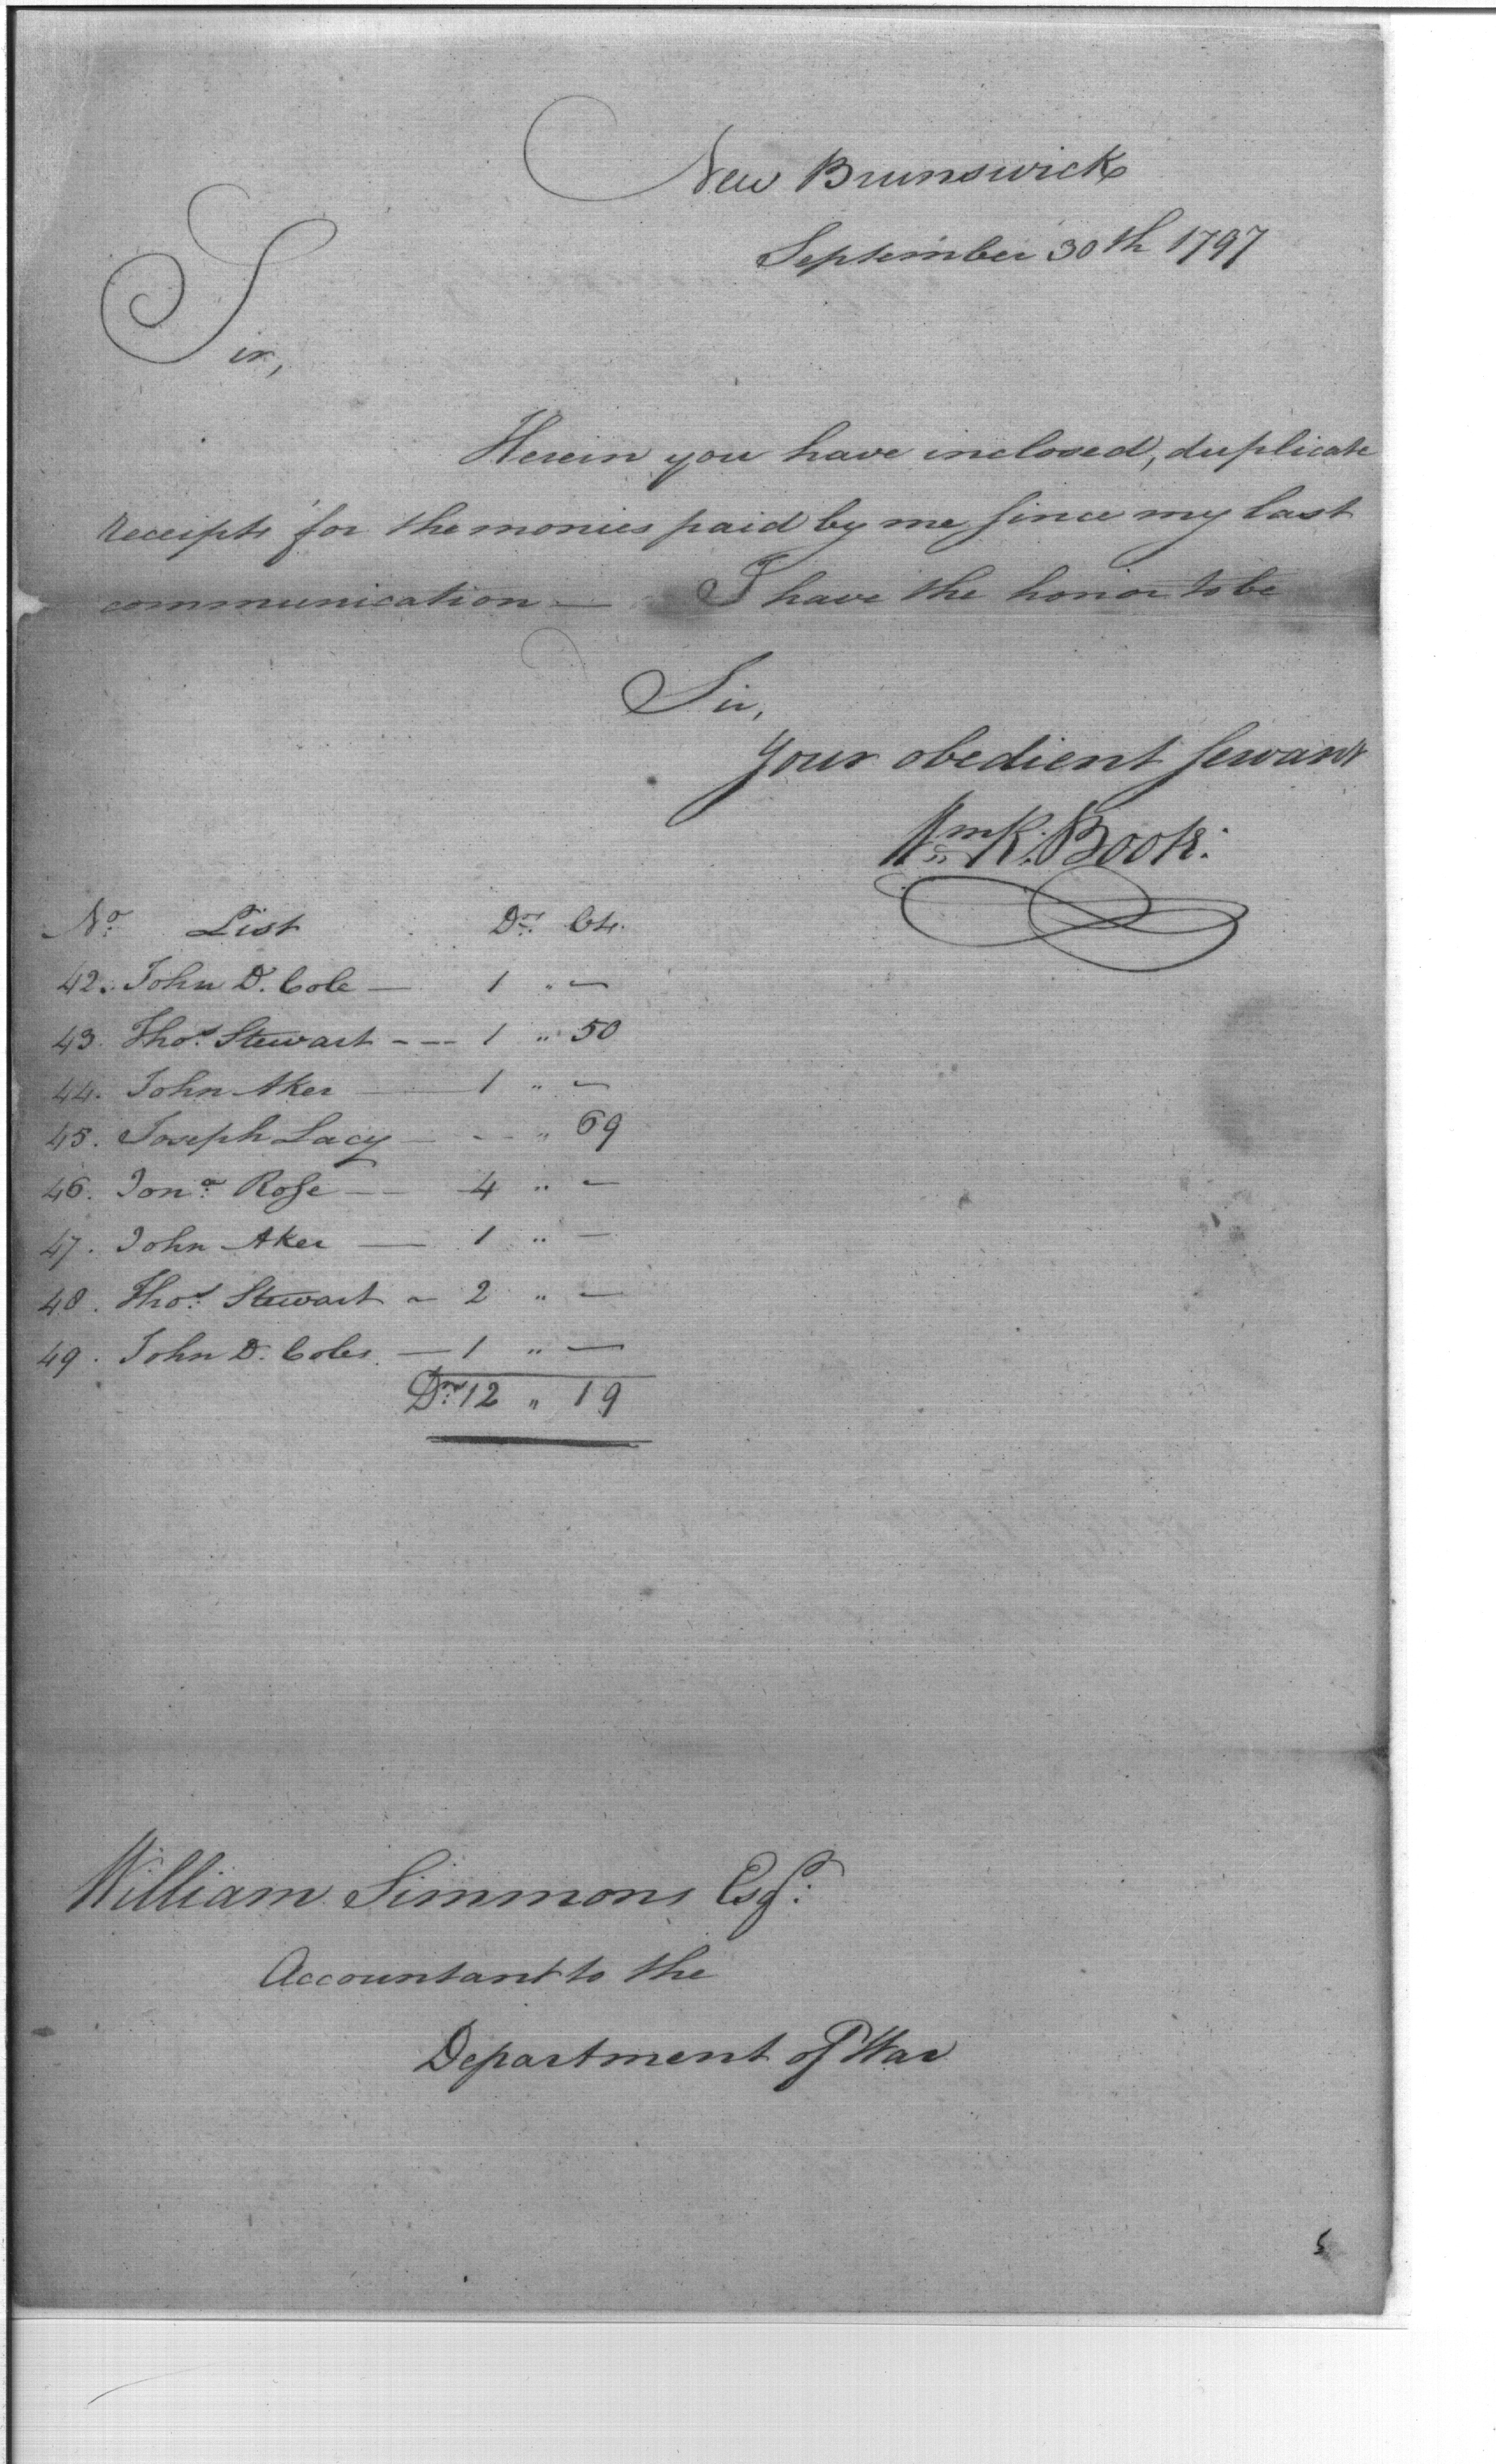 New Brunswick
September 30th 1797
Sir,
Herein you have inclosed, duplicate
receipts for the monies paid by me since my last
communication — I have the honor to be
Sir,
Your obedient servant
Wm R: Book:
No: List Drs: Cts.
42. John D. Cole — 1 " —
43. Thos: Stewart - — 1 " 50
44. John Aker — 1 " —
45. Joseph Lacy — - " 69
46. Jona: Rose — 4 " —
47. John Aker — 1 " —
48. Thos: Stewart - 2 " —
49. John D. Coles. — 1 " —
Drs: 12 " 19
William Simmons Esqr:
Accountant to the
Department of War